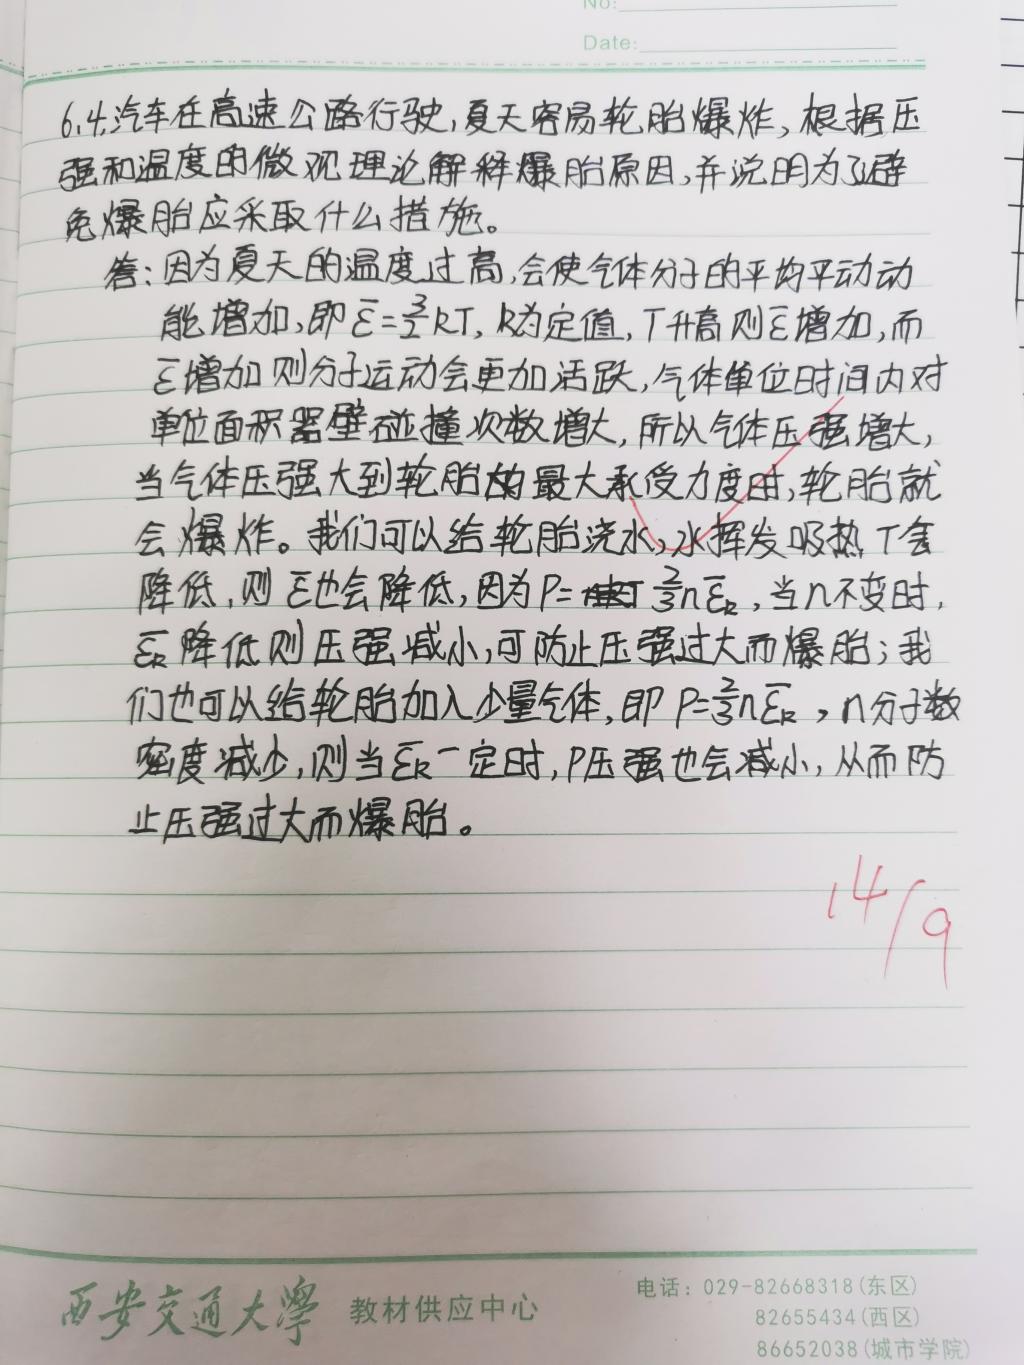 No:
Date:
6.4.汽车在高速公路行驶,夏天容易轮胎爆炸,根据压
强和温度的微观理论解释爆胎原因,并说明为了避
免爆胎应采取什么措施。
答:因为夏天的温度过高,会使气体分子的平均平动动
能增加,即ε̄=3/2kT,k为定值,T升高则ε̄增加,而
ε̄增加则分子运动会更加活跃,气体单位时间内对
单位面积器壁碰撞次数增大,所以气体压强增大,
当气体压强大到轮胎的最大承受力度时,轮胎就
会爆炸。我们可以给轮胎浇水,水挥发吸热T会
降低,则ε̄也会降低,因为P=2/3nε̄k,当n不变时,
ε̄k降低则压强减小,可防止压强过大而爆胎;我
们也可以给轮胎加入少量气体,即P=2/3nε̄k,n分子数
密度减少,则当ε̄k一定时,P压强也会减小,从而防
止压强过大而爆胎。
14/9
西安交通大学 教材供应中心
电话:029-82668318(东区)
82655434(西区)
86652038(城市学院)